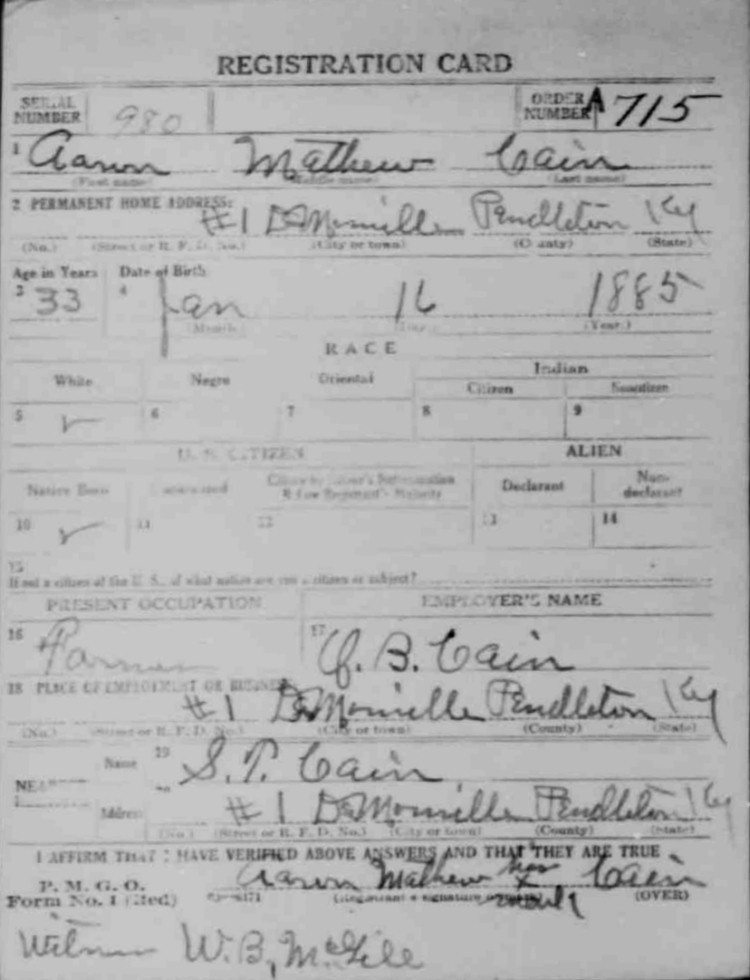 REGISTRATION CARD
SERIAL NUMBER 980 ORDER NUMBER A 715
1 Aaron Mathew Cain
(First name) (Middle name) (Last name)
2 PERMANENT HOME ADDRESS:
#1 DeMossville Pendleton Ky
(No.) (Street or R. F. D. No.) (City or town) (County) (State)
Age in Years Date of Birth
3 33 4 Jan 16 1885
(Month.) (Day.) (Year.)
RACE
White Negro Oriental Indian
Citizen Noncitizen
5 ✓ 6 7 8 9
U. S. CITIZEN ALIEN
Native Born Naturalized Citizen by Father's Naturalization Before Registrant's Majority Declarant Non-declarant
10 ✓ 11 12 13 14
15
If not a citizen of the U. S., of what nation are you a citizen or subject?
PRESENT OCCUPATION EMPLOYER'S NAME
16 Farmer 17 J. B. Cain
18 PLACE OF EMPLOYMENT OR BUSINESS:
#1 DeMossville Pendleton Ky
(No.) (Street or R. F. D. No.) (City or town) (County) (State)
Name 19 S. T. Cain
Address #1 DeMossville Pendleton Ky
(No.) (Street or R. F. D. No.) (City or town) (County) (State)
I AFFIRM THAT I HAVE VERIFIED ABOVE ANSWERS AND THAT THEY ARE TRUE
P. M. G. O.
Form No. 1 (Red) Aaron Mathew his x mark Cain
(Registrant's signature or mark) (OVER)
Witness W. B. McGill